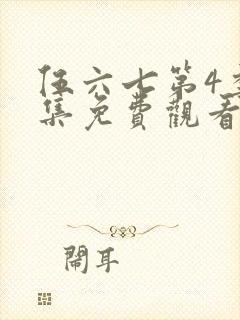 伍六七第4季
集免費觀看
鬧耳